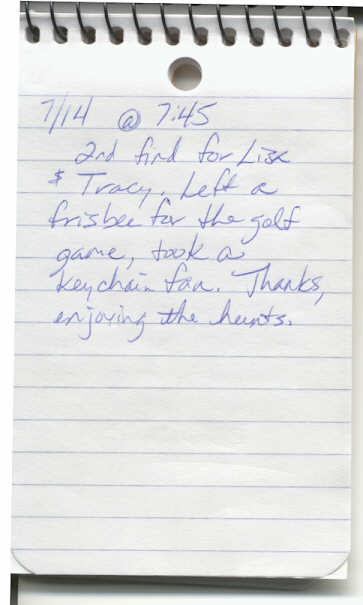 7/14 @ 7:45
2nd find for Lisa
& Tracy. Left a
frisbee for the golf
game, took a
keychain fan. Thanks,
enjoying the hunts.